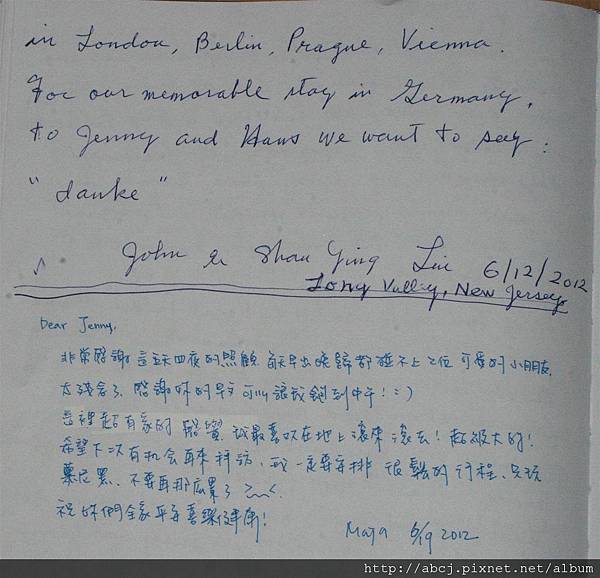 in London, Berlin, Prague, Vienna.
For our memorable stay in Germany,
to Jenny and Hans we want to say:
"danke"
John & Shau Ying Liu 6/12/2012
Long Valley, New Jersey
Dear Jenny,
非常感謝這五天四夜的照顧 前天早出晚歸都碰不上2位可愛的小朋友,
太殘念了. 感謝妳的早 可以讓我飽到中午! :)
這裡超有家的感覺 我最喜歡在地上滾來滾去! 超級大的!
希望下次有机会再來拜訪, 我一定要安排很鬆的行程、只玩
慕尼黑、不要再那麼累了 >﹏<.
祝妳們全家平安喜樂健康!
Maja 6/19 2012
http://abcj.pixnet.net/album